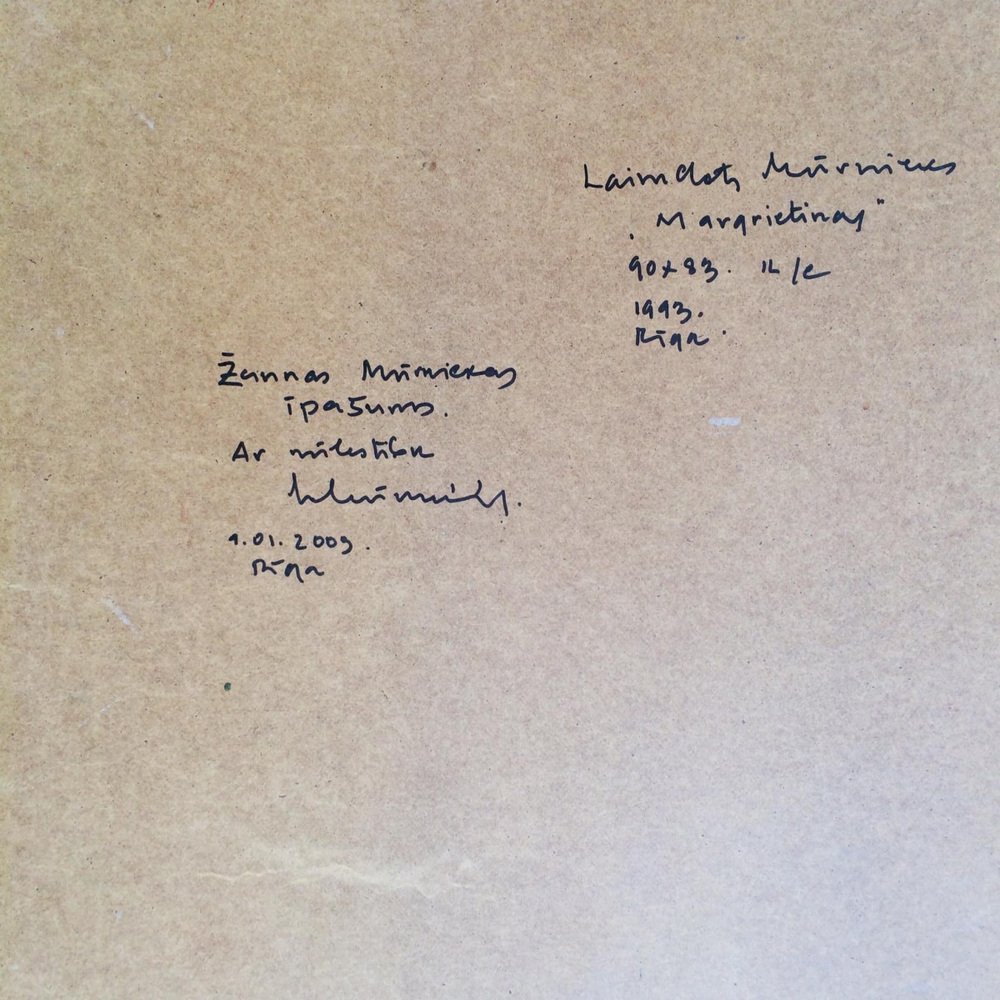 Laimdots Mūrnieks
„Margrietiņas"
90x83. k/e
1993.
Rīga.
Žannas Mūrniekas
īpašums.
Ar mīlestību
1.01.2009.
Rīga